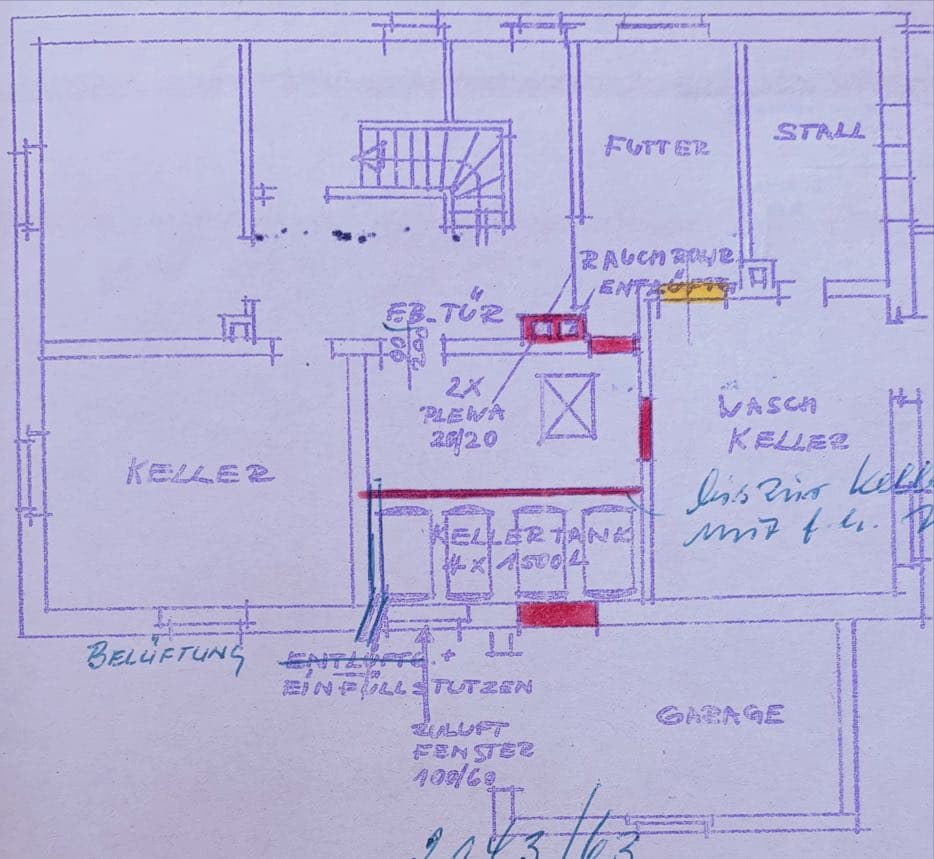 FUTTER
STALL
RAUCHROHR
FB-TÜR
90
200
2X
PLEWA
20/20
WASCH
KELLER
KELLER
bis zur
mit f. h.
KELLERTANK
4 x 1500 L
BELÜFTUNG
ENTLÜFTG. +
EINFÜLLSTUTZEN
GARAGE
ZULUFT
FENSTER
100/60
2143/63